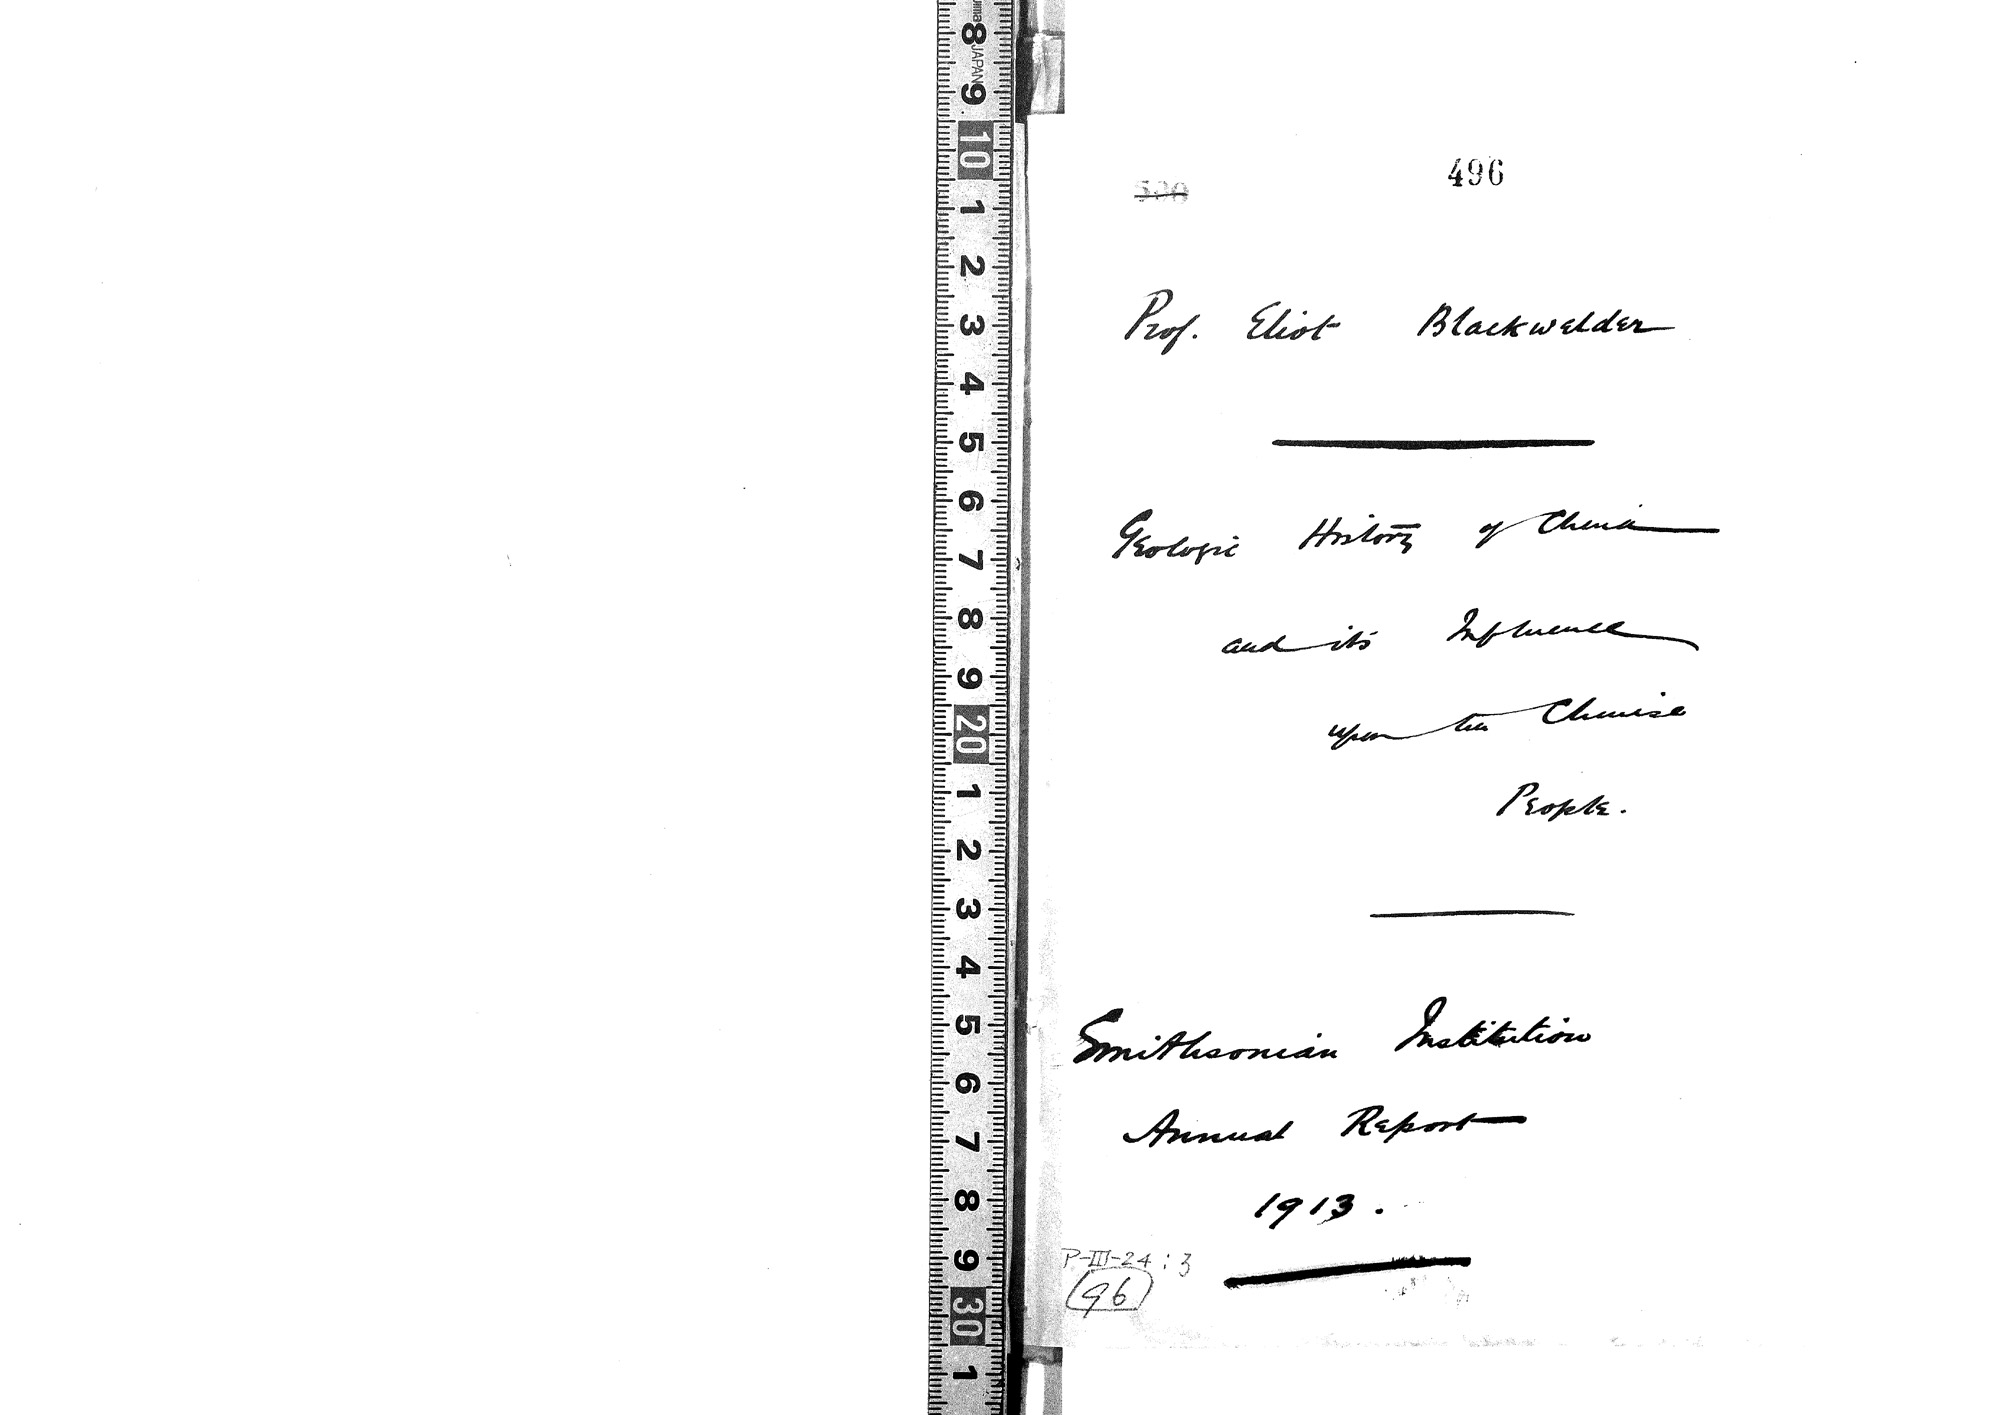 8 JAPAN 9 10 1 2 3 4 5 6 7 8 9 20 1 2 3 4 5 6 7 8 9 30 1
496
Prof. Eliot Blackwelder
Geologic History of China
and its Influence
upon the Chinese
People.
Smithsonian Institution
Annual Report
1913.
P-III-24:3
96